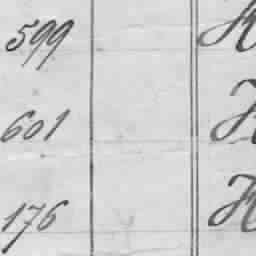 599 H
601 H
176 H